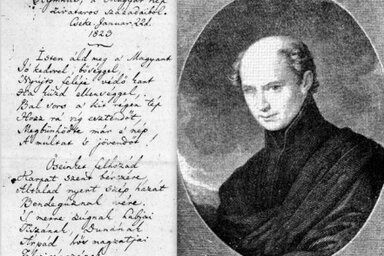 Hymnus, a' Magyar nép
zivataros századaiból.
Cseke, Januar. 22d.
1823
Isten áldd meg a' Magyart
Jó kedvvel, bőséggel,
Nyújts feléje védő kart
Ha küzd ellenséggel;
Bal sors a' kit régen tép
Hozz rá víg esztendőt,
Megbünhödte már e' nép
A' multat 's jövendőt!
Őseinket felhozád
Kárpát szent bérczére,
Általad nyert szép hazát
Bendegúznak vére.
'S merre zúgnak habjai
Tiszának, Dunának
Árpád' hős magzatjai